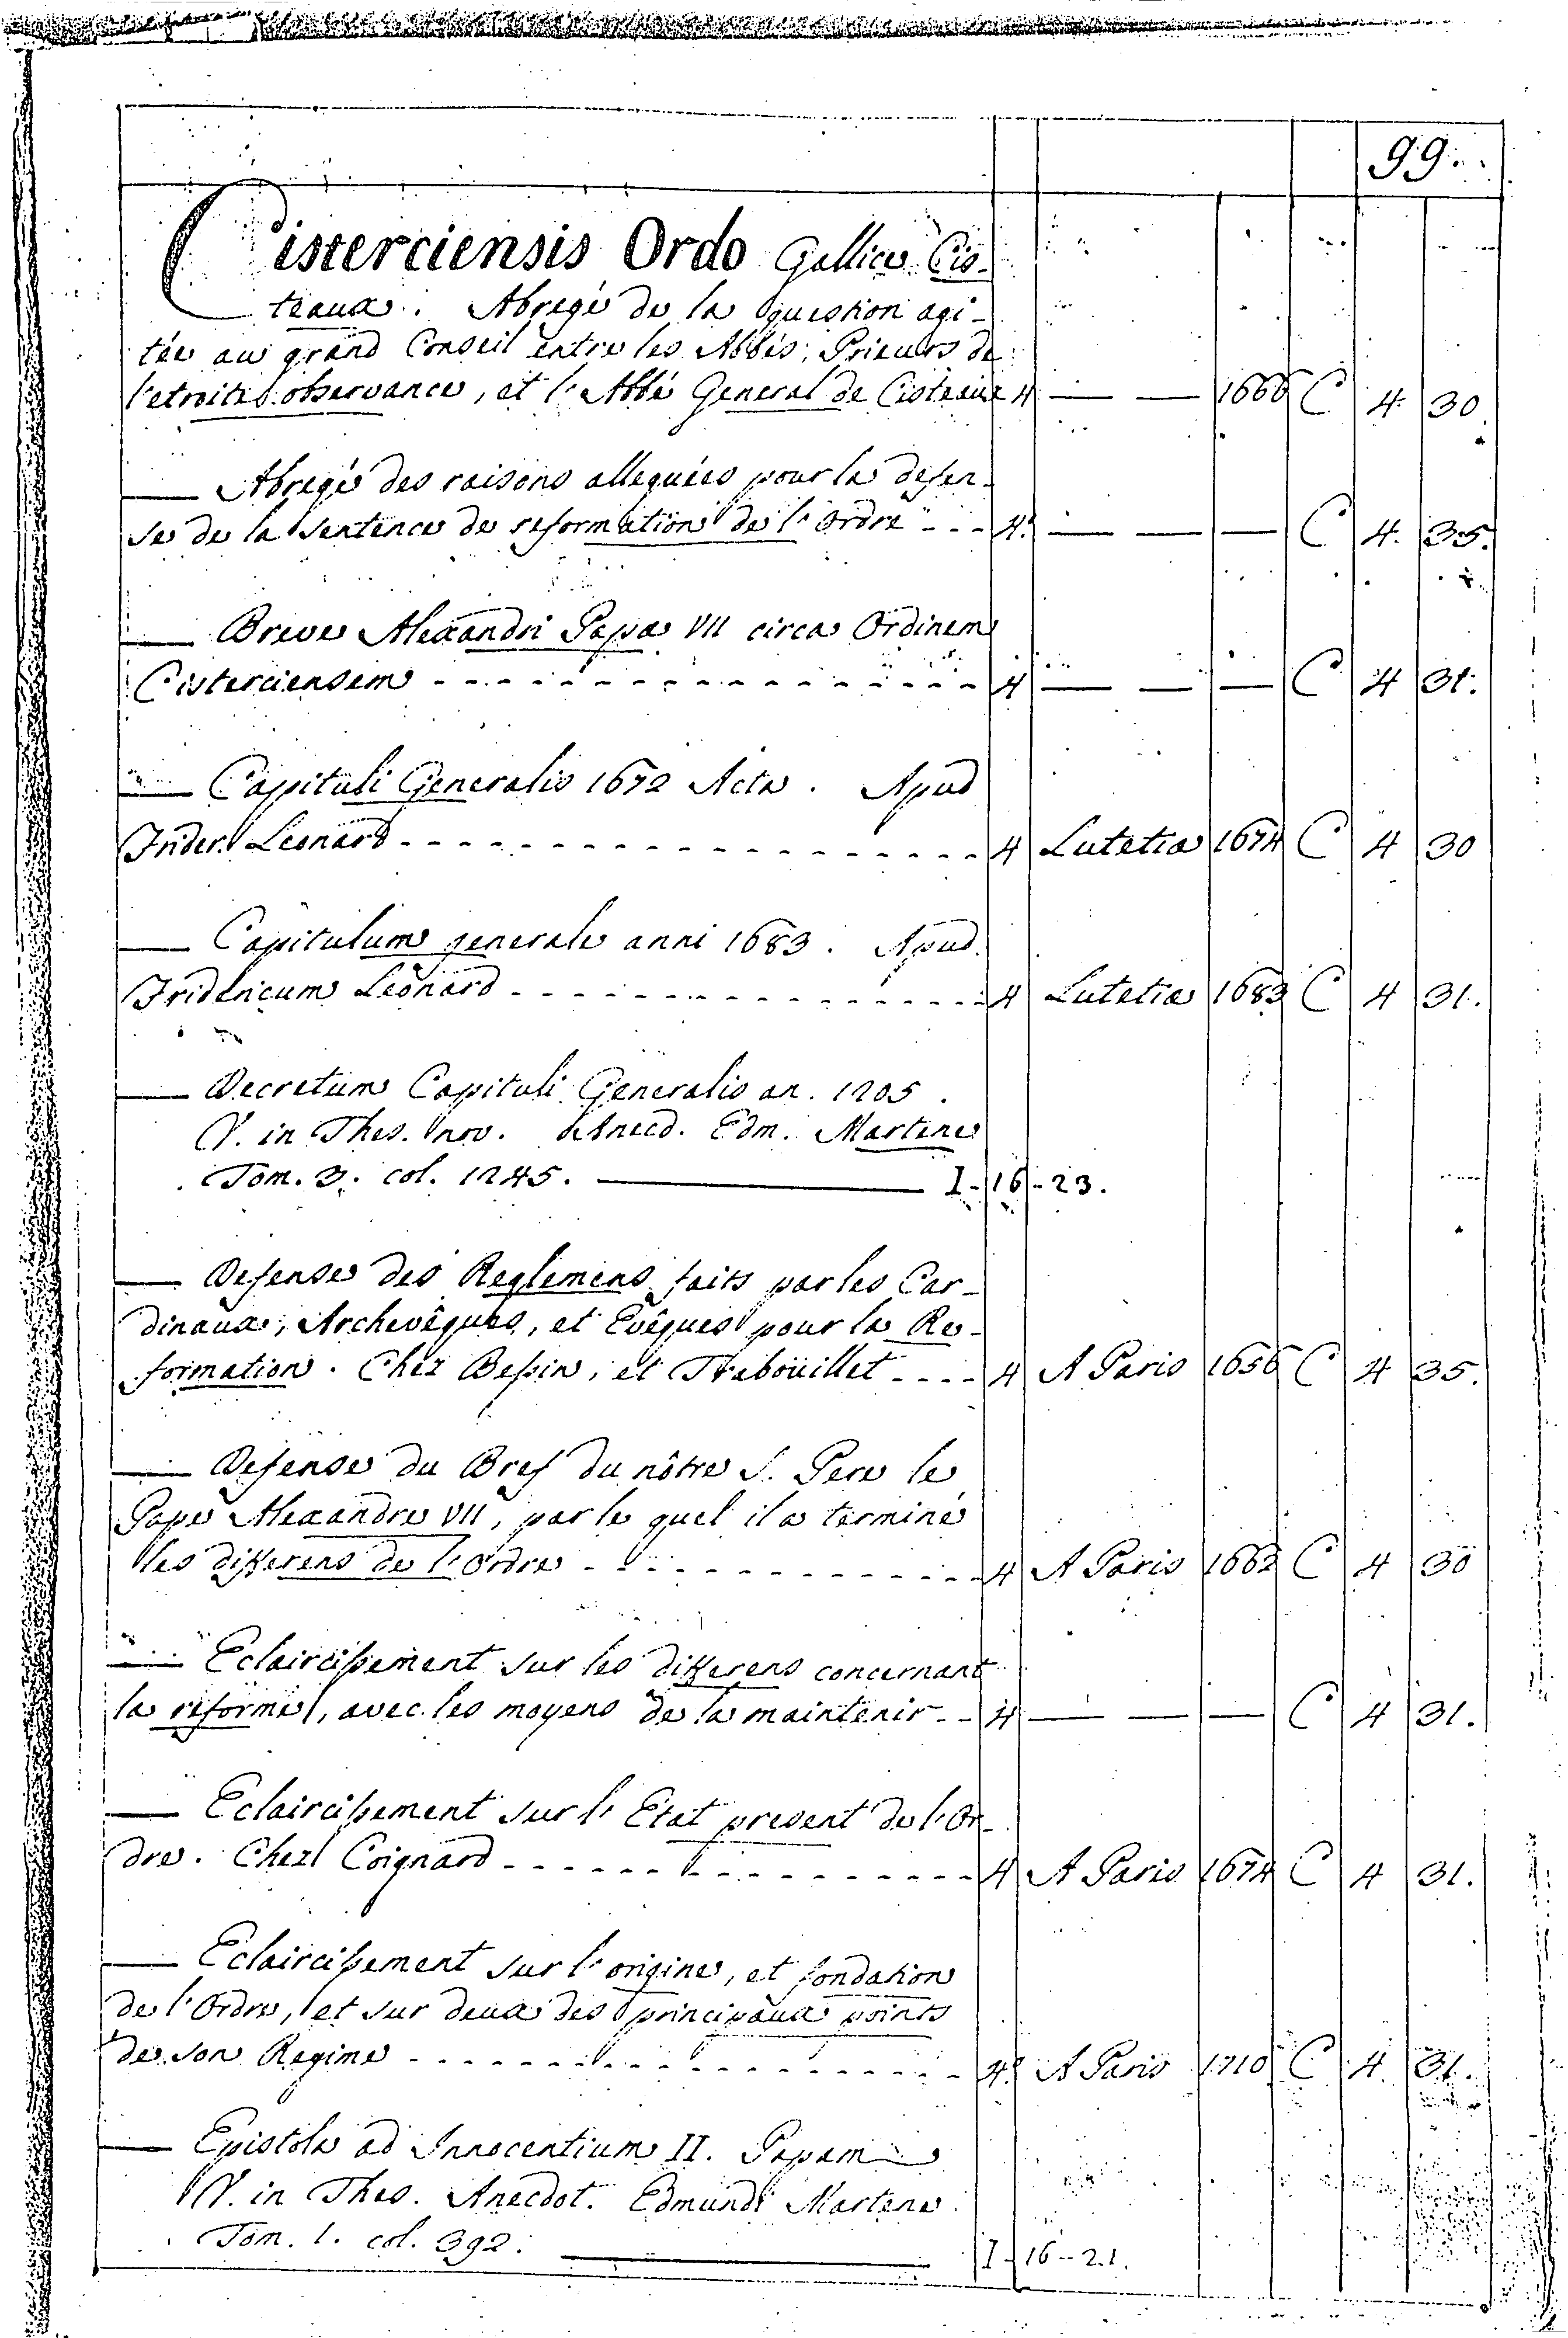 99.
Cisterciensis Ordo Gallice Cis-
teaux. Abregé de la question agi-
tée au grand Conseil entre les Abbés, Prieurs de
l'etroite observance, et l'Abbé General de Cisteaux 4 — — 1666 C 4 30
— Abregé des raisons alleguées pour la defen-
se de la sentence de reformation de l'Ordre - - - 4. — — — C 4. 35.
— Breve Alexandri Papæ VII circa Ordinem
Cisterciensem - - - - - - 4 — — — C 4 31.
— Capituli Generalis 1672 Acta. Apud
Frider. Leonard - - - - - - 4 Lutetiæ 1674 C 4 30
— Capitulum generale anni 1683. Apud
Fridericum Leonard - - - - - - 4 Lutetiæ 1683 C 4 31.
— Decretum Capituli Generalis an. 1205.
V. in Thes. nov. Anecd. Edm. Martene
Tom. 3. col. 1245. — I - 16 - 23.
— Defense des Reglemens faits par les Car-
dinaux, Archevêques, et Evêques pour la Re-
formation. Chez Beßin, et Trabouillet - - - - 4 A Paris 1656 C 4 35.
— Defense du Bref du nôtre S. Pere le
Pape Alexandre VII, par le quel il a terminé
les differens de l'Ordre - - - - - - 4 A Paris 1662 C 4 30
— Eclaircißement sur les differens concernant
la reforme, avec les moyens de la maintenir - - 4 — — — C 4 31.
— Eclaircißement sur l'Etat present de l'Or-
dre. Chez Coignard - - - - - - 4 A Paris 1674 C 4 31.
— Eclaircißement sur l'origine, et fondation
de l'Ordre, et sur deux des principaux points
de son Regime - - - - - - 4. A Paris 1710 C 4 31.
— Epistola ad Innocentium II. Papam
V. in Thes. Anecdot. Edmundi Martene
Tom. 1. col. 392. — I - 16 - 21.